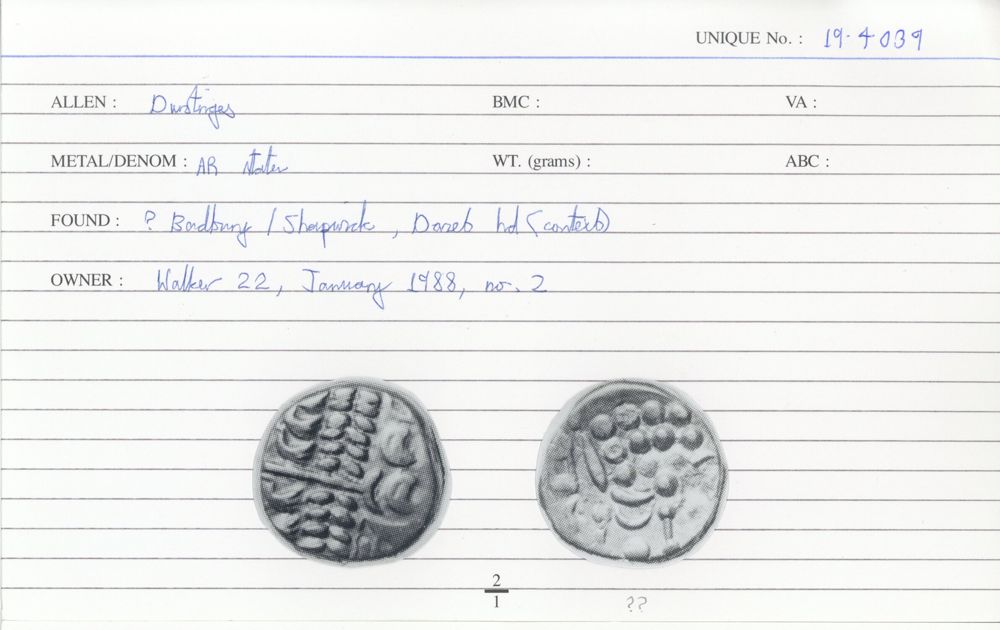 UNIQUE No. : 19.4039
ALLEN : Durotriges BMC : VA :
METAL/DENOM : AR stater WT. (grams) : ABC :
FOUND : ? Badbury / Shapwick, Dorset hd (contexts)
OWNER : Walker 22, January 1988, no. 2
2
1
??